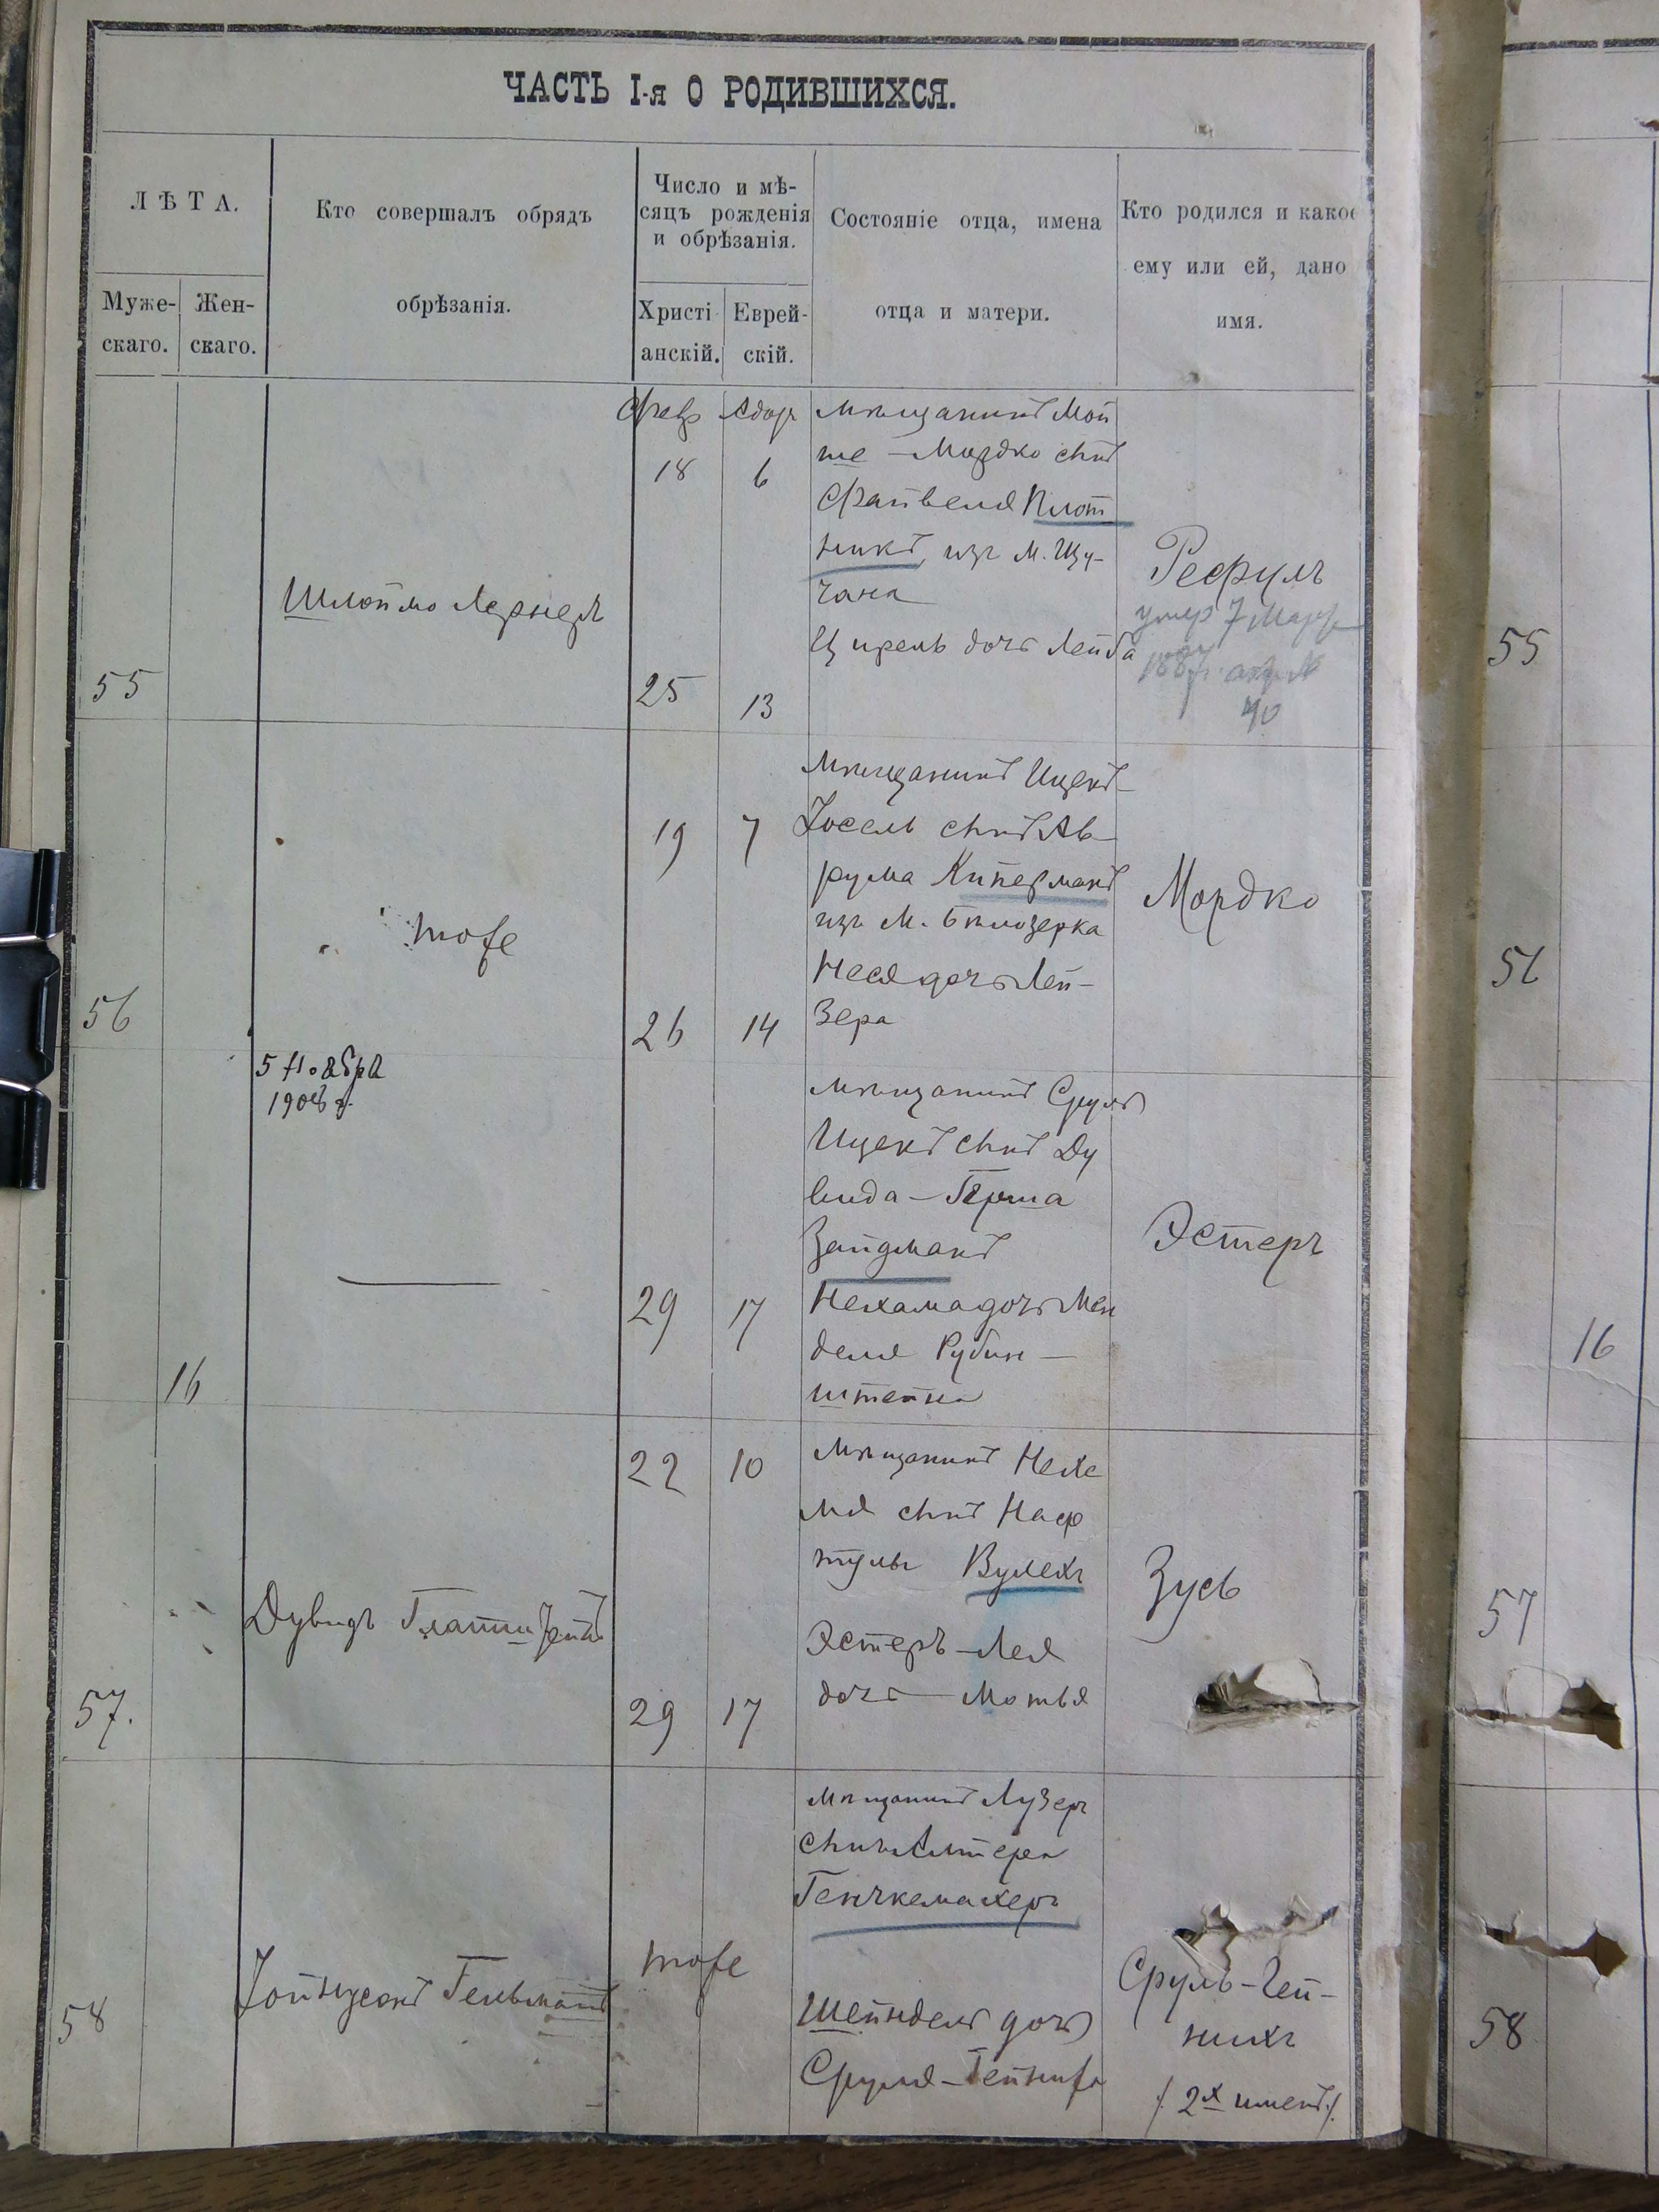 ЧАСТЬ I-я О РОДИВШИХСЯ.
ЛѢТА.
Муже-
скаго.
Жен-
скаго.
Кто совершалъ обрядъ
обрѣзанія.
Число и мѣ-
сяцъ рожденія
и обрѣзанія.
Христі
анскій.
Еврей-
скій.
Состояніе отца, имена
отца и матери.
Кто родился и какое
ему или ей, дано
имя.
55
Шлоймо Лернеръ
Февр
18
25
Адаръ
6
13
Мѣщанинъ Мой
ше – Мордко сынъ
Файвеля Плот
никъ, изъ м. Щу-
чана
Цирель дочь Лейба
Рефулъ
умер 7 Мар
40
55
56
тоже
19
26
7
14
Мѣщанинъ Ицекъ –
Іосель сынъ Ав –
рума Киперманъ
изъ М. Бѣлозерка
Неся дочь Лей –
зера
Мордко
56
5 Ноября
1908 г.
16
29
17
Мѣщанинъ Сруль
Ицекъ сынъ Ду
вида – Герша
Зайдманъ
Нехама дочь Мен
деля Рубин –
штейна
Эстеръ
16
57.
Дувидъ
22
29
10
17
Мѣщанинъ Нехе
мя сынъ Наф
тулы Вулехъ
Эстеръ – Лея
дочь – Мотья
Зусь
57
58
Гельманъ
тоже
Мѣщанинъ Лузеръ
сынъ Алтера
Генчкемахеръ
Шейндель дочь
Сруля – Гейниха
Сруль – Гей –
нихъ
/ 2х именъ /.
58